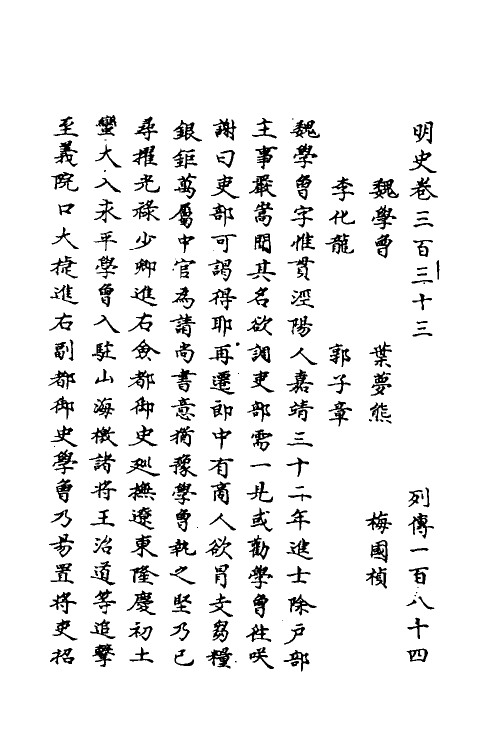 明史卷三百三十三　列傳一百八十四
魏學曾　葉夢熊　梅國楨
李化龍　郭子章
魏學曾字惟貫涇陽人嘉靖三十二年進士除戶部
主事嚴嵩聞其名欲調吏部需一見或勸學曾往咲
謝曰吏部可謁得耶再遷郎中有商人欲冒支芻糧
銀鉅萬屬中官為請尚書意猶豫學曾執之堅乃已
尋擢光祿少卿進右僉都御史廵撫遼東隆慶初土
蠻大入永平學曾入駐山海檄諸將王治道等追擊
至義院口大捷進右副都御史學曾乃易置將吏招